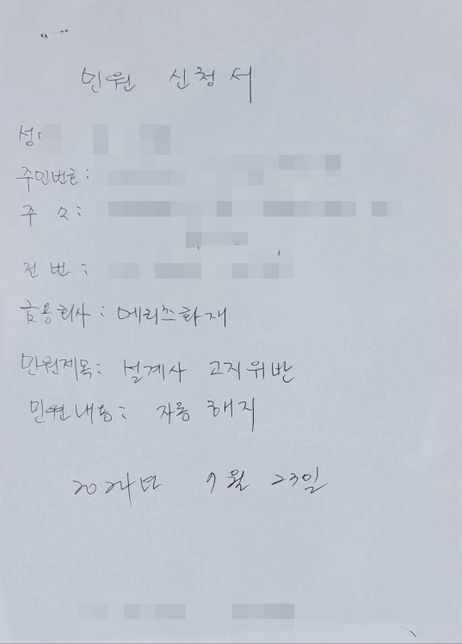 민원 신청서
성
주민번호:
주 소:
전 번:
금융회사: 메리츠화재
민원제목: 설계사 고지위반
민원내용: 자동 해지
2024년 9월 23일